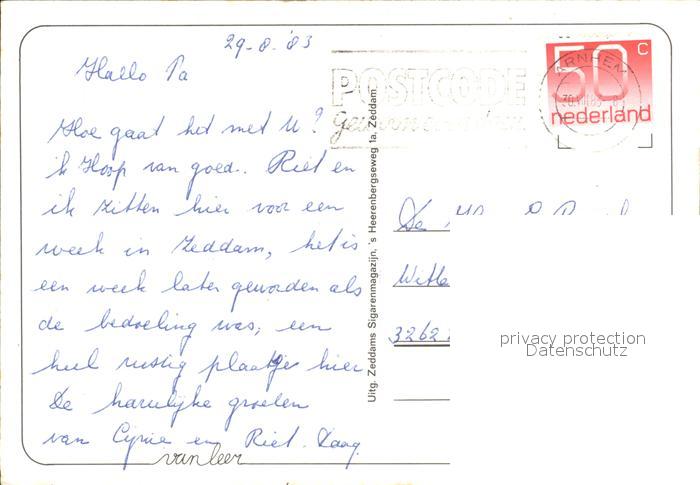 29-8-'83
Hallo Pa
Hoe gaat het met U?
ik Hoop van goed.. Riet en
ik zitten hier voor een
week in Zeddam, het is
een week later geworden als
de bedoeling was, een
heel rustig plaatje hier
De hartelijke groeten
van en Riet. Daag.
van leer
POSTCODE
Gewoon
ARNHEM
50 C
nederland
Uitg. Zeddams Sigarenmagazijn, 's Heerenbergseweg 1a, Zeddam.
De
3262
privacy protection
Datenschutz